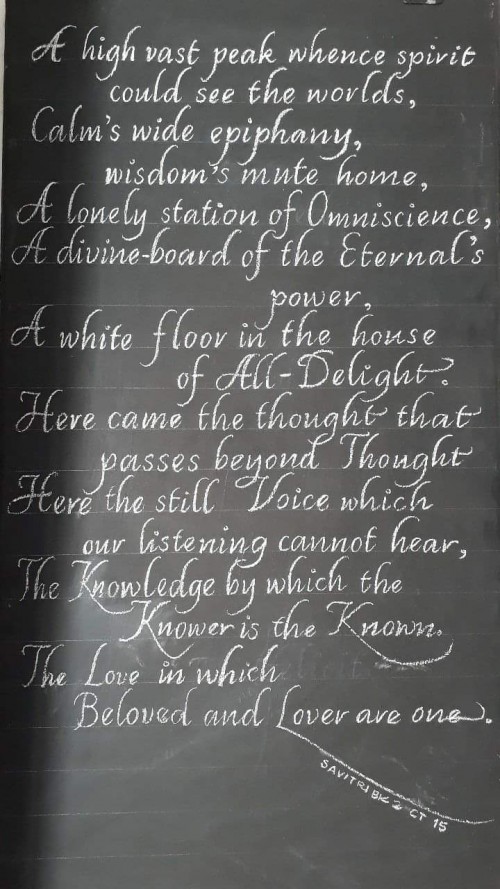 A high vast peak whence spirit
could see the worlds,
Calm's wide epiphany,
wisdom's mute home,
A lonely station of Omniscience,
A divine-board of the Eternal's
power,
A white floor in the house
of All-Delight.
Here came the thought that
passes beyond Thought
Here the still Voice which
our listening cannot hear,
The Knowledge by which the
Knower is the Known.
The Love in which
Beloved and Lover are one.
SAVITRI BK 2 CT 15